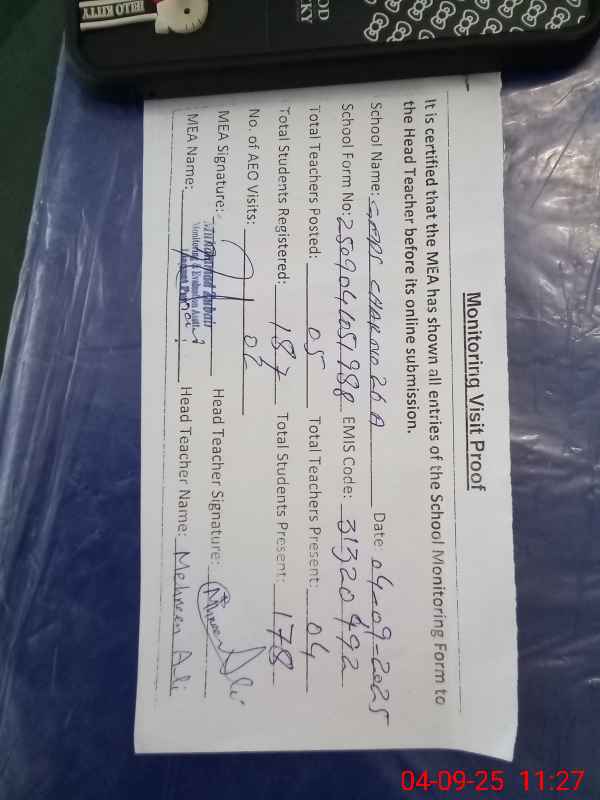 HELLO KITTY
Monitoring Visit Proof
It is certified that the MEA has shown all entries of the School Monitoring Form to
the Head Teacher before its online submission.
School Name: 26 A Date: 04-09-2025
School Form No: EMIS Code: 31320492
Total Teachers Posted: 05 Total Teachers Present: 04
Total Students Registered: 187 Total Students Present: 178
No. of AEO Visits: 02
MEA Signature: Head Teacher Signature: Ali
MEA Name: Head Teacher Name: Mehreen Ali
04-09-25 11:27